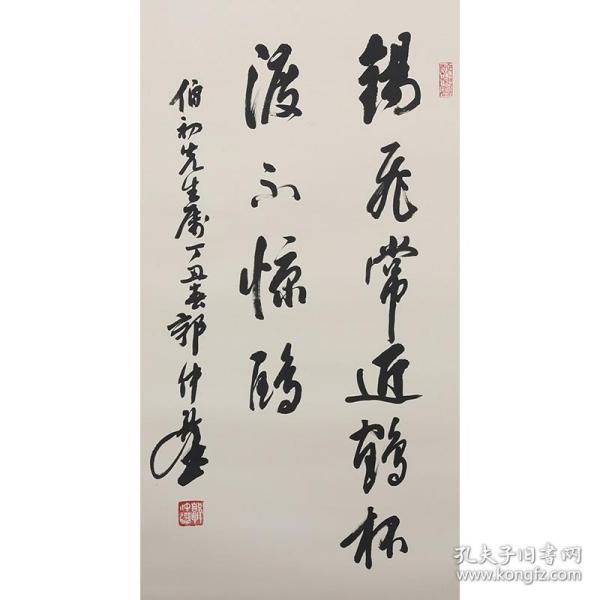 锡飛常近鶴杯
渡不惊鸥
伯初先生属丁丑春郭仲選
孔夫子旧书网
www.kongfz.com